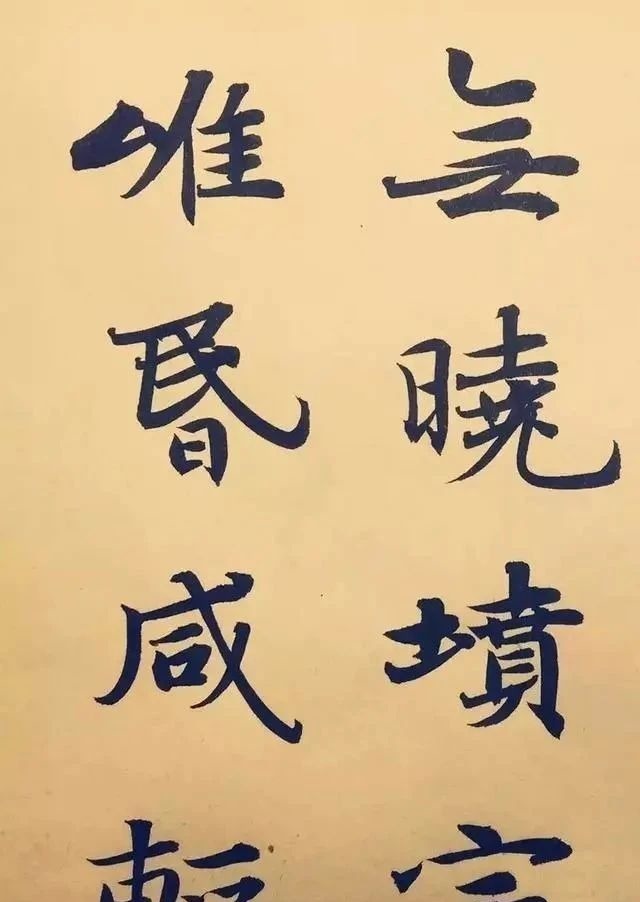 無曉墳
唯昏咸